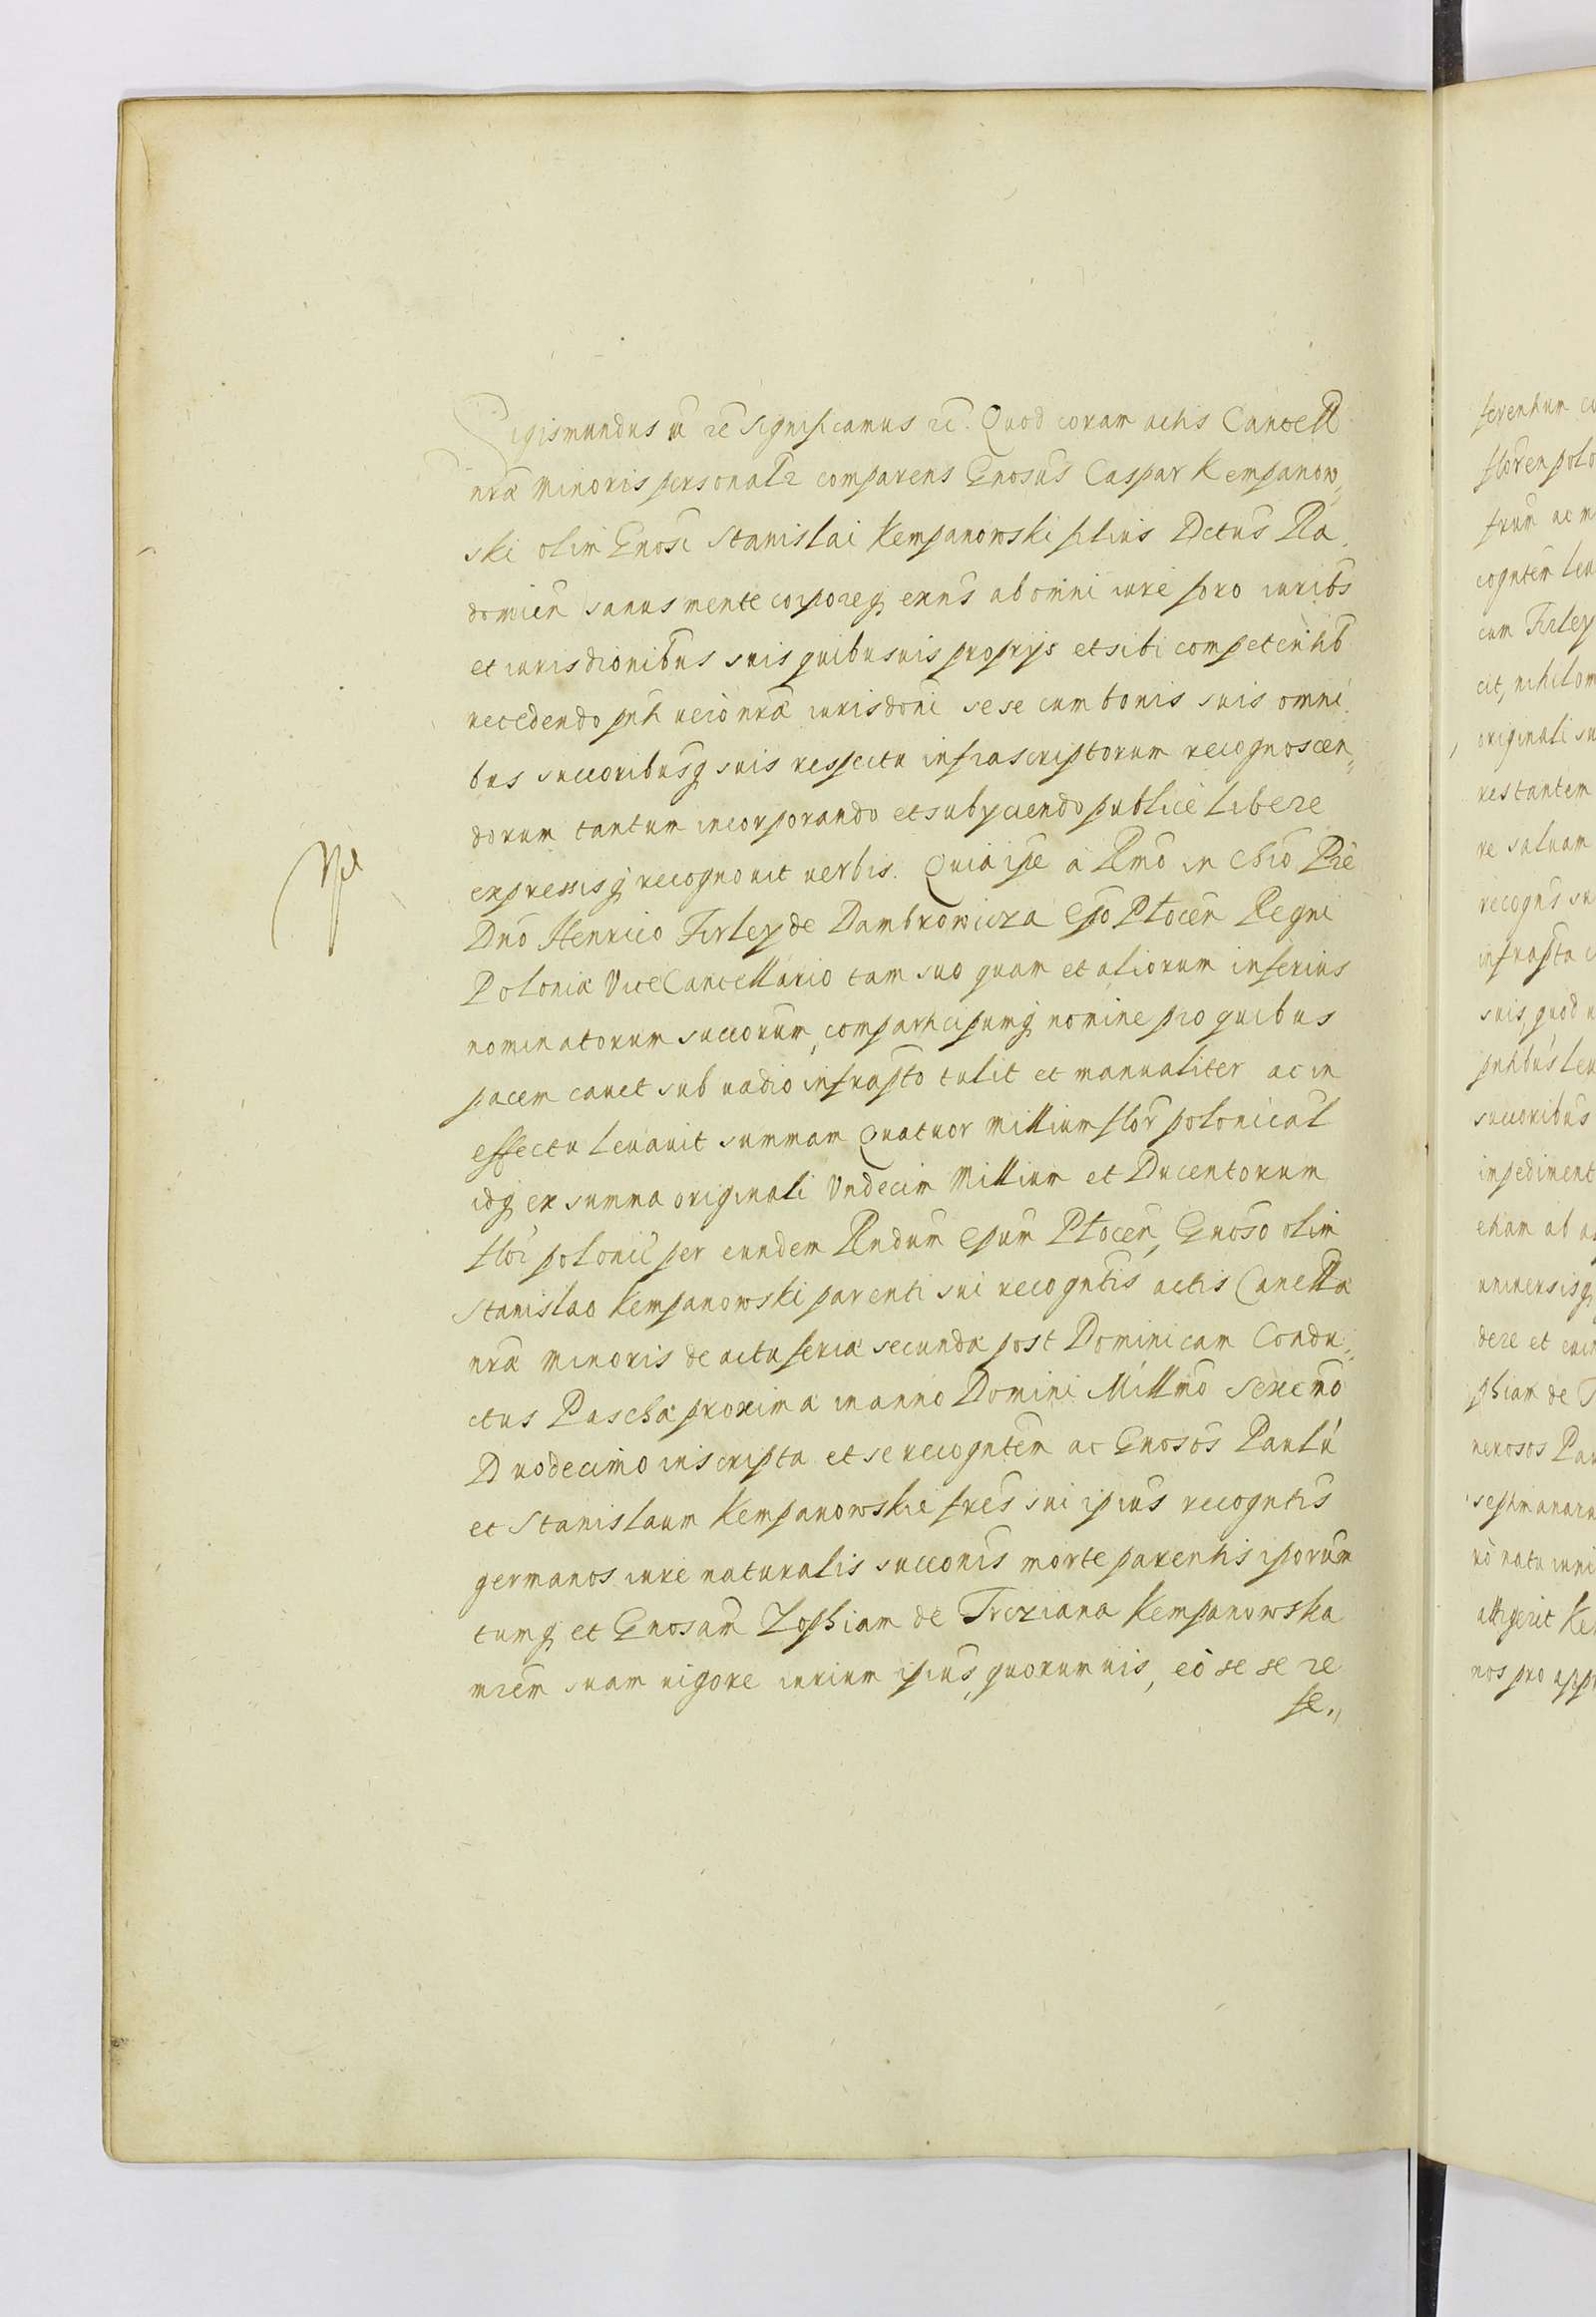 Sigismundus rc̃ significamus rc̃. Quod coram actis Cancell
nrã Minoris personalr comparens Gnosus Caspar Kempanow„
ski olim Gnosi Stanislai Kempanowski filius Dctus Ra„
domien sanus mente corporeq exns ab omni iure foro iuribs
et iurisdionibus suis quibusuis proprijs et sibi competentib
recedendo pnti uero nrã iurisdoni sese cum bonis suis omni„
bus successoribusq suis respectu infrascriptorum recognoscen„
dorum tantum incorporando et subyciendo publice libere
expressisq recognouit uerbis. Quia ipe a Rmo in Chro Pre
Dno Henrico Firley de Dambrowicza Epo Plocen Regni
Poloniæ ViceCancellario tam suo quam et aliorum inferius
nominatorum succorum, comparticipumq nomine pro quibus
pacem cauet sub uadio infrapto tulit et manualiter ac in
effectu leuauit summam Quatuor Millium flor polonical
idq ex summa originali Vndecim Millium et Ducentorum
flor polonic per eundem Rndum Epum Plocen, Gnoso olim
Stanislao Kempanowski parenti sui recogntis actis Cancellæ
nrã Minoris de actu feria secunda post Dominicam Condu„
ctus Paschæ proxima in anno Domini Millmo Sexcmo
Duodecimo inscripta et se recogntem ac Gnosos Paulu
et Stanislaum Kempanowskie fres sui ipius recogntis
germanos iure naturalis succonis morte parentis iporum
tumq et Gnosam Zophiam de Trcziana Kempanowska
mrem suam uigore iurium ipius, quorumuis, eo se se re
fe„
ferentium
floren polo
frum ac
cogntem leu
cum Firley
cit, nihilom
originali su
restantem
re saluam
recogns su
infrapta
suis, quod
pntibus leu
succoribus
impediment
etiam ab
uniuersisq
dere et
phiam de T
nerosos Pau
septimana
ro natu
attigerit Ke
nos pro app